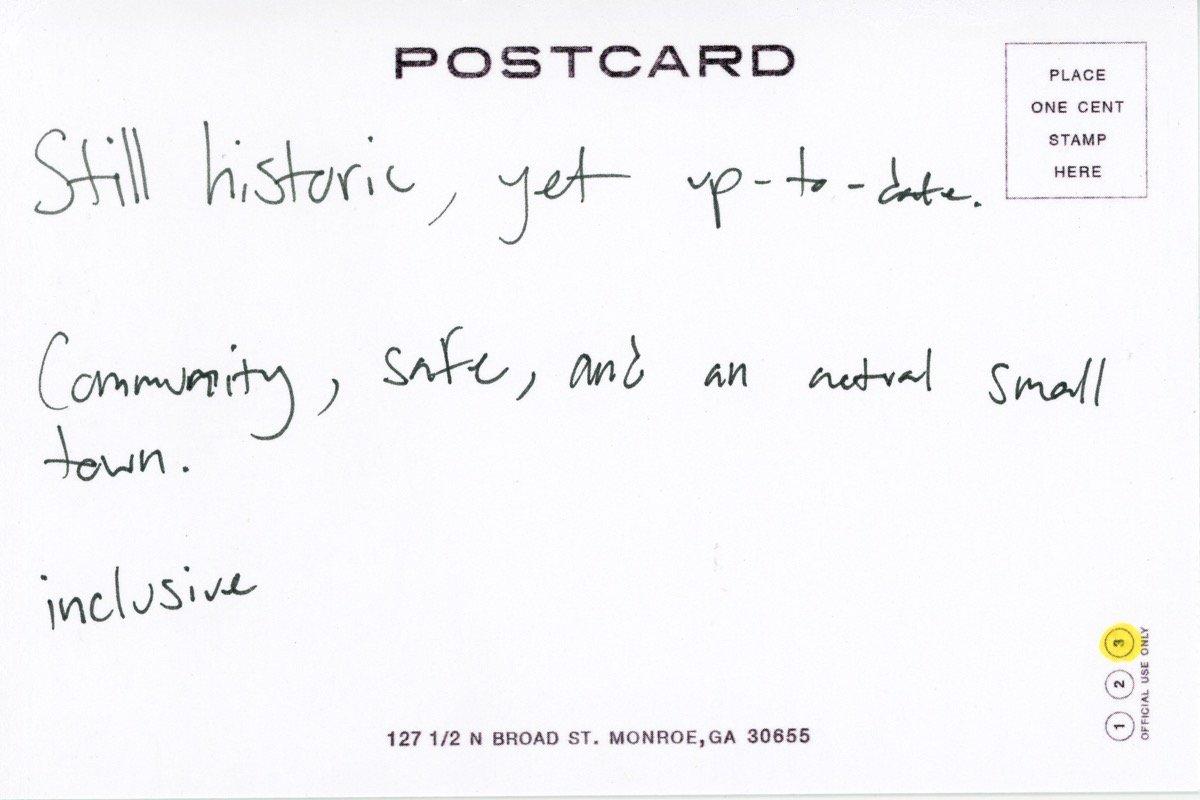 POSTCARD
PLACE
ONE CENT
STAMP
HERE
Still historic, yet up-to-date.
Community, safe, and an actual small
town.
inclusive
1 2 3
OFFICIAL USE ONLY
127 1/2 N BROAD ST. MONROE,GA 30655